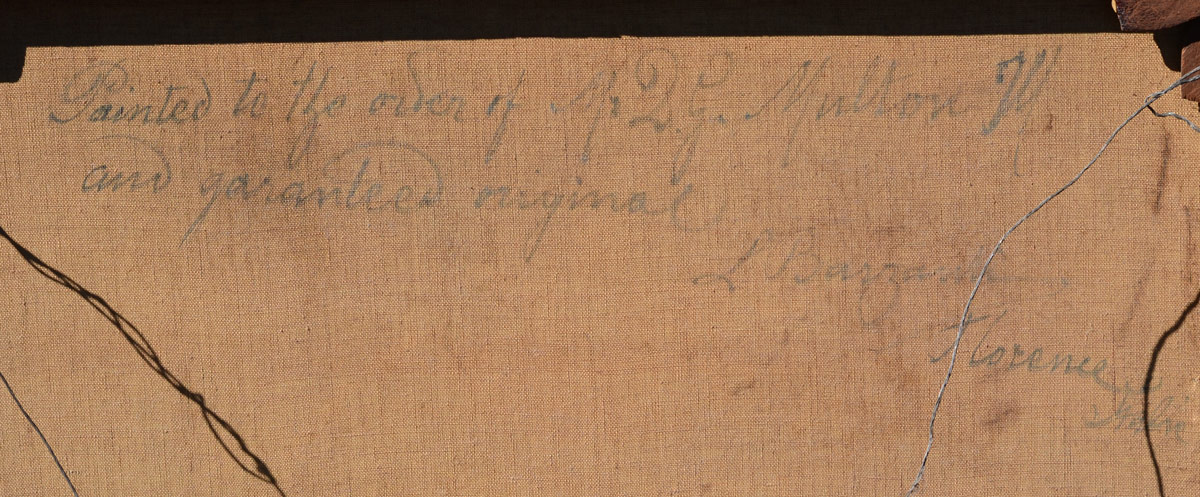 Painted to the order of Mr D. G.
and garanteed original
L Bazzanti
Florence